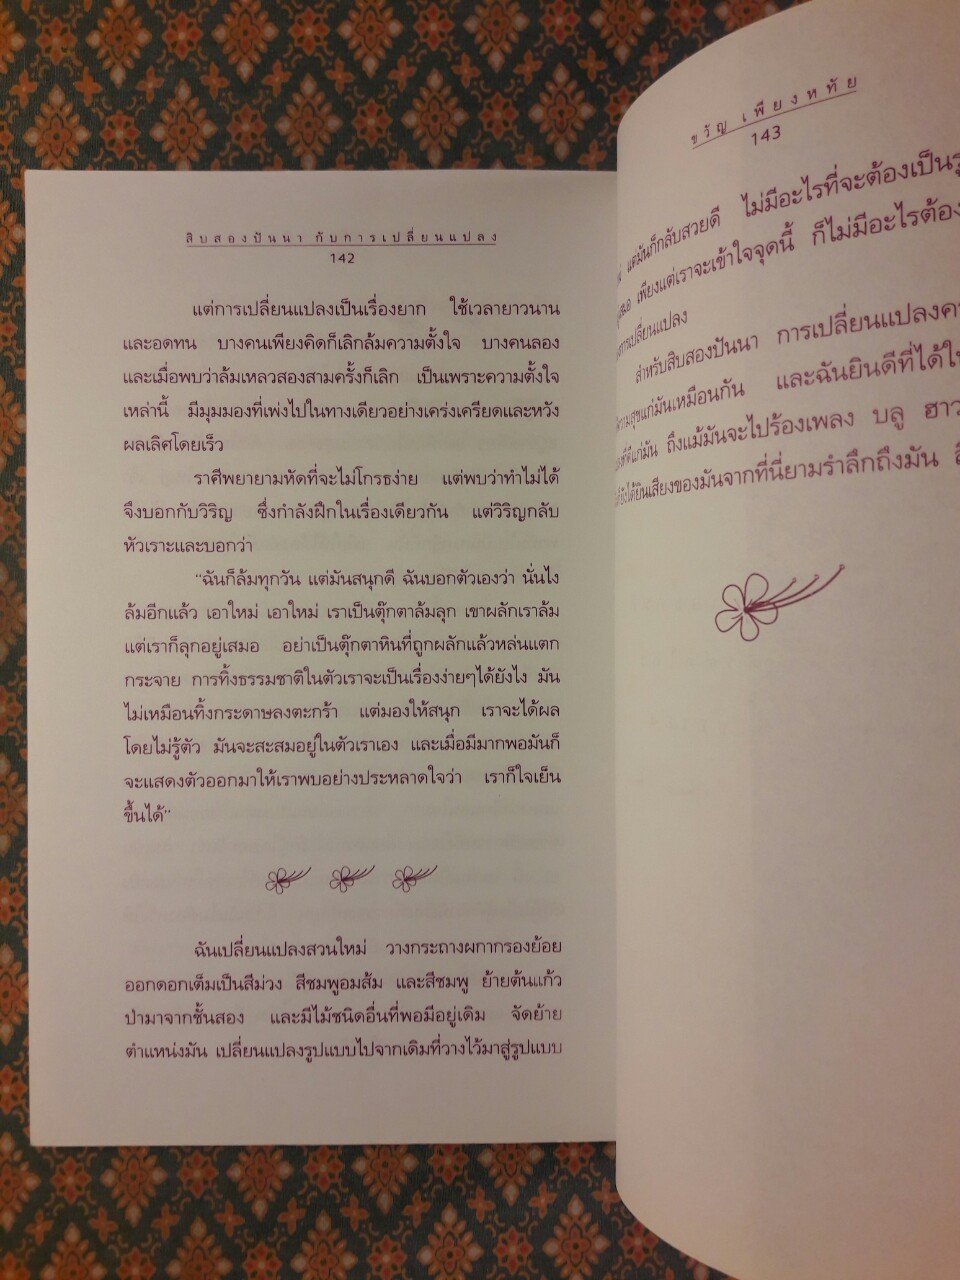 สิบสองปันนา กับการเปลี่ยนแปลง
142
แต่การเปลี่ยนแปลงเป็นเรื่องยาก ใช้เวลายาวนาน
และอดทน บางคนเพียงคิดก็เลิกล้มความตั้งใจ บางคนลอง
และเมื่อพบว่าล้มเหลวสองสามครั้งก็เลิก เป็นเพราะความตั้งใจ
เหล่านี้ มีมุมมองที่เพ่งไปในทางเดียวอย่างเคร่งเครียดและหวัง
ผลเลิศโดยเร็ว
ราศีพยายามหัดที่จะไม่โกรธง่าย แต่พบว่าทำไม่ได้
จึงบอกกับวิริญ ซึ่งกำลังฝึกในเรื่องเดียวกัน แต่วิริญกลับ
หัวเราะและบอกว่า
“ฉันก็ล้มทุกวัน แต่มันสนุกดี ฉันบอกตัวเองว่า นั่นไง
ล้มอีกแล้ว เอาใหม่ เอาใหม่ เราเป็นตุ๊กตาล้มลุก เขาผลักเราล้ม
แต่เราก็ลุกอยู่เสมอ อย่าเป็นตุ๊กตาหินที่ถูกผลักแล้วหล่นแตก
กระจาย การทิ้งธรรมชาติในตัวเราจะเป็นเรื่องง่ายๆได้ยังไง มัน
ไม่เหมือนทิ้งกระดาษลงตะกร้า แต่มองให้สนุก เราจะได้ผล
โดยไม่รู้ตัว มันจะสะสมอยู่ในตัวเราเอง และเมื่อมีมากพอมันก็
จะแสดงตัวออกมาให้เราพบอย่างประหลาดใจว่า เราก็ใจเย็น
ขึ้นได้”
ฉันเปลี่ยนแปลงสวนใหม่ วางกระถางผกากรองย้อย
ออกดอกเต็มเป็นสีม่วง สีชมพูอมส้ม และสีชมพู ย้ายต้นแก้ว
ป่ามาจากชั้นสอง และมีไม้ชนิดอื่นที่พอมีอยู่เดิม จัดย้าย
ตำแหน่งมัน เปลี่ยนแปลงรูปแบบไปจากเดิมที่วางไว้มาสู่รูปแบบ
ขวัญ เพียงหทัย
143
แต่มันก็กลับสวยดี ไม่มีอะไรที่จะต้องเป็น
เพียงแต่เราจะเข้าใจจุดนี้ ก็ไม่มีอะไรต้อง
การเปลี่ยนแปลง
สำหรับสิบสองปันนา การเปลี่ยนแปลง
ความสุขแก่มันเหมือนกัน และฉันยินดีที่ได้
ที่ดีแก่มัน ถึงแม้มันจะไปร้องเพลง บลู
ยังได้ยินเสียงของมันจากที่นี่ยามรำลึกถึงมัน